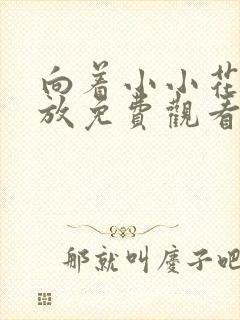 向着小小花
放免費觀看
那就叫慶子吧